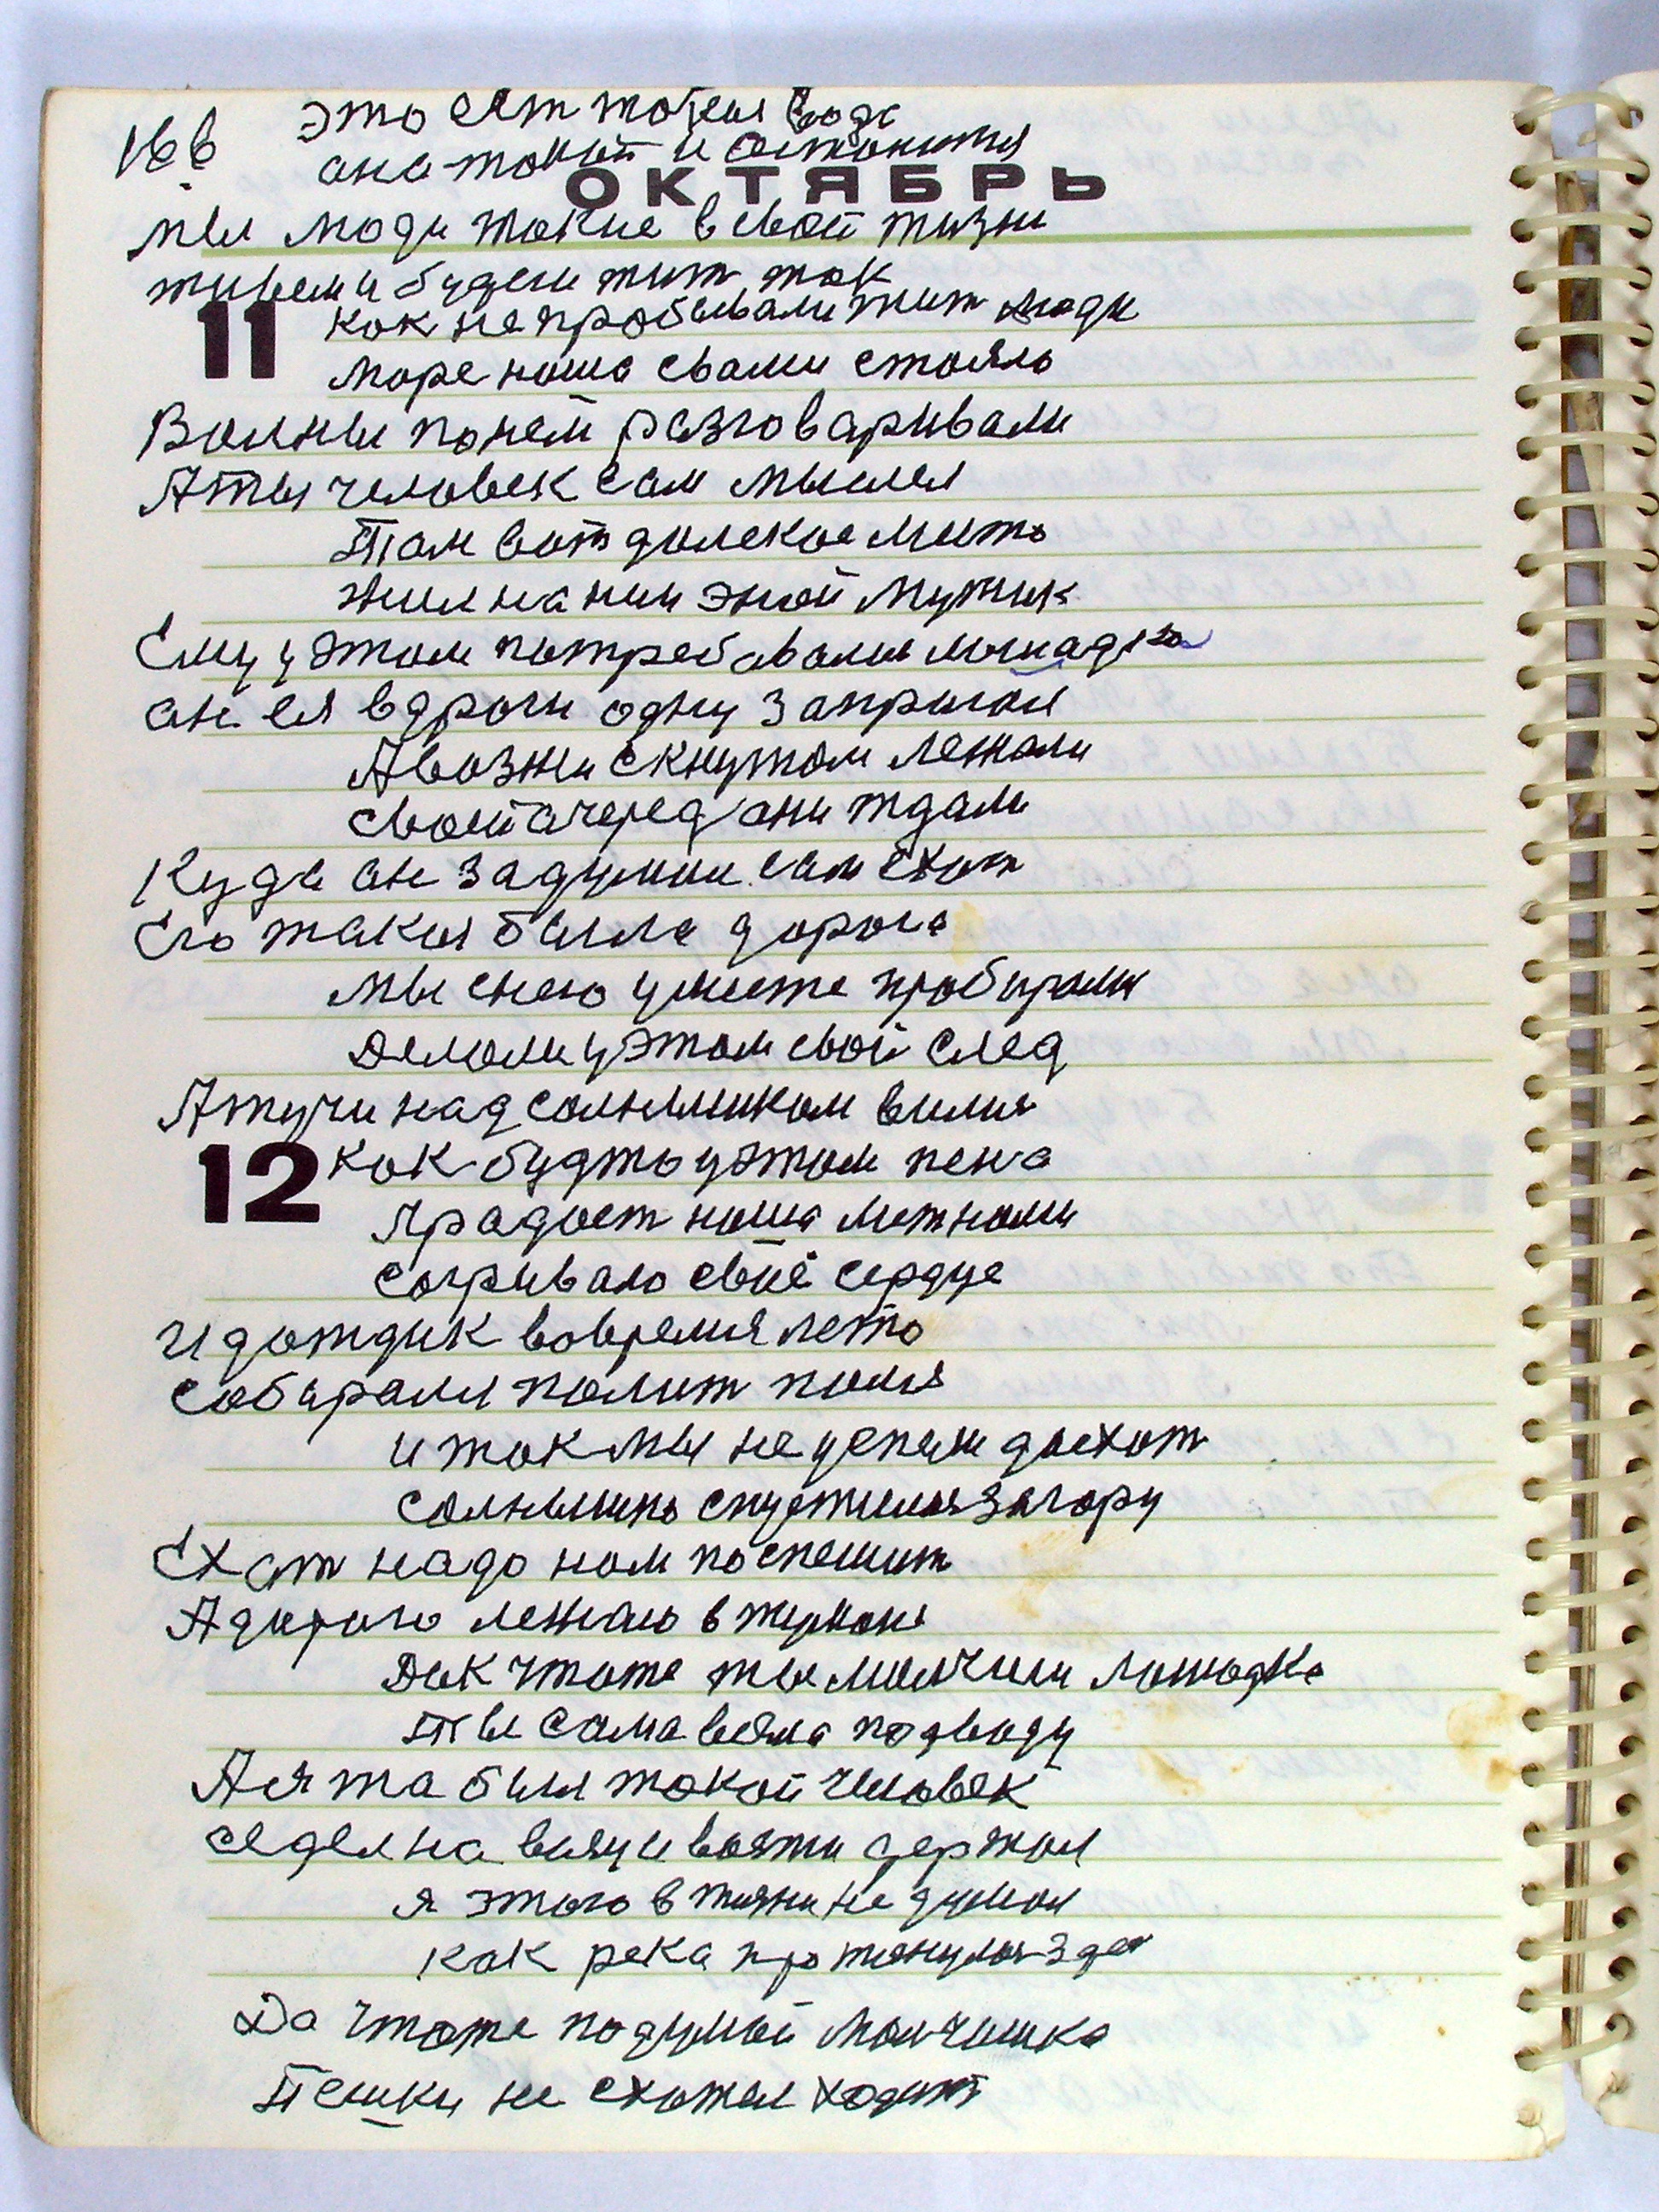 166 это ест тоБея вода
ана такой и останится
ОКТЯБРЬ
мы люди такие в свой жизни
живем и будем жит так
11
как не пробывали жит люди
море наша свами стояло
Волны по ней разговаривали
А ты человек сам мыслел
Там вот далекое место
жил на ним зной мужик
Ему у этом потребавалис лошадка
ан ея в дроги одну запригал
А возжи скнутом лежали
свой ачеред ани ждали
Куда ан задумал сам ехат
Его такая была дорога
мы снею уместе пробирали
делали у этом свой след
А тучи над солнышком вилис
12
как будто у этом пена
Я радост наша меж нами
сагривало своё сердце
и дождик вовремя лето
собирался полит поля
и так мы не успели доехат
солнышко спустилося за гору
Ехат надо нам поспешит
А дорога лежало в
Дак что же ты молчиш лошадка
Ты сама везла подводу
А я та был такой человек
седел на возу и вожжи держал
я этого в жизни не думал
как река протянулася здес
Да что же подумай мальчишка
Пешки не схотел ходит